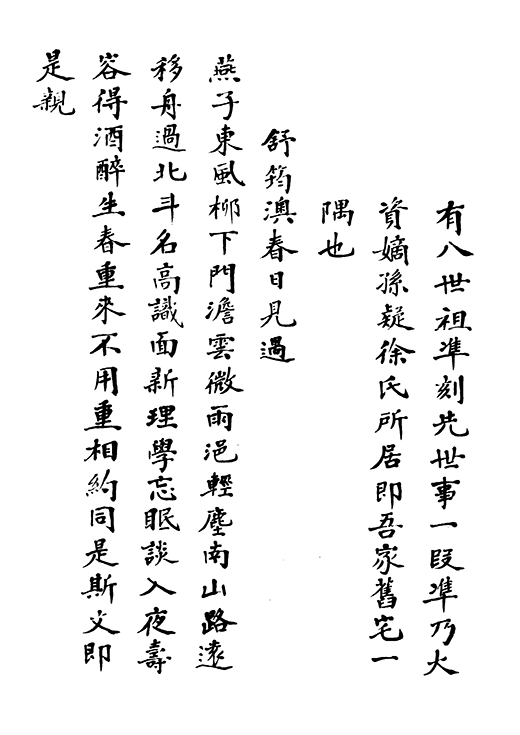 有八世祖準刻先世事一段準乃大
資嫡孫疑徐氏所居即吾家舊宅一
隅也
舒筠澳春日見過
燕子東風柳下門澹雲微雨浥輕塵南山路遠
移舟過北斗名高識面新理學忘眠談入夜壽
容得酒醉生春重來不用重相約同是斯文即
是親